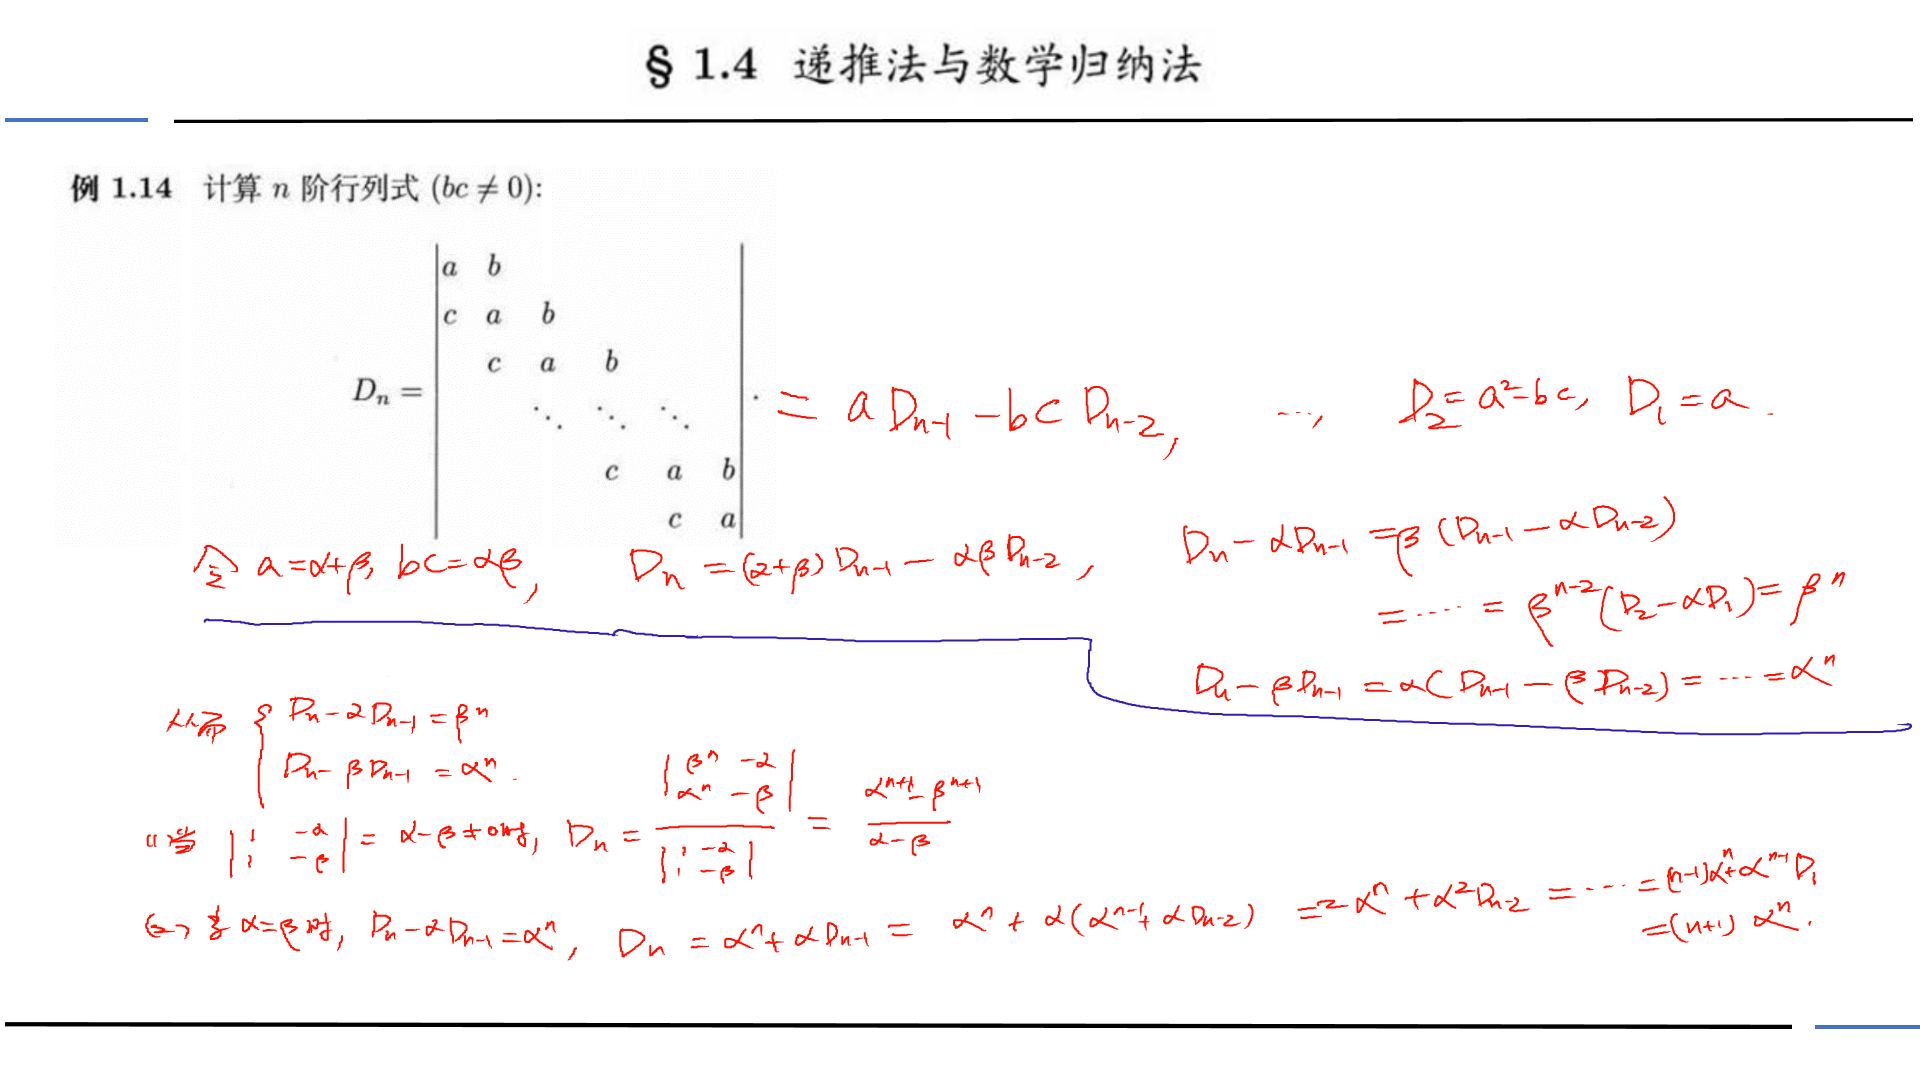 § 1.4 递推法与数学归纳法
例 1.14 计算 n 阶行列式 (bc ≠ 0):
a b
c a b
c a b
Dₙ = ⋱ ⋱ ⋱ . = a Dₙ₋₁ − bc Dₙ₋₂, ···, D₂ = a² − bc, D₁ = a.
c a b
c a
令 a = α+β, bc = αβ, Dₙ = (α+β) Dₙ₋₁ − αβ Dₙ₋₂, Dₙ − αDₙ₋₁ = β (Dₙ₋₁ − αDₙ₋₂)
= ···· = βⁿ⁻² (D₂ − αD₁) = βⁿ
Dₙ − βDₙ₋₁ = α( Dₙ₋₁ − βDₙ₋₂) = ··· = αⁿ
从而 { Dₙ − αDₙ₋₁ = βⁿ
Dₙ − βDₙ₋₁ = αⁿ .
(1) 当 | 1 −α ; 1 −β | = α−β ≠ 0 时, Dₙ = | βⁿ −α ; αⁿ −β | / | 1 −α ; 1 −β | = (αⁿ⁺¹ − βⁿ⁺¹) / (α−β)
(2) 当 α=β 时, Dₙ − αDₙ₋₁ = αⁿ, Dₙ = αⁿ + αDₙ₋₁ = αⁿ + α(αⁿ⁻¹ + αDₙ₋₂) = 2αⁿ + α²Dₙ₋₂ = ··· = (n−1)αⁿ + αⁿ⁻¹D₁
= (n+1) αⁿ.